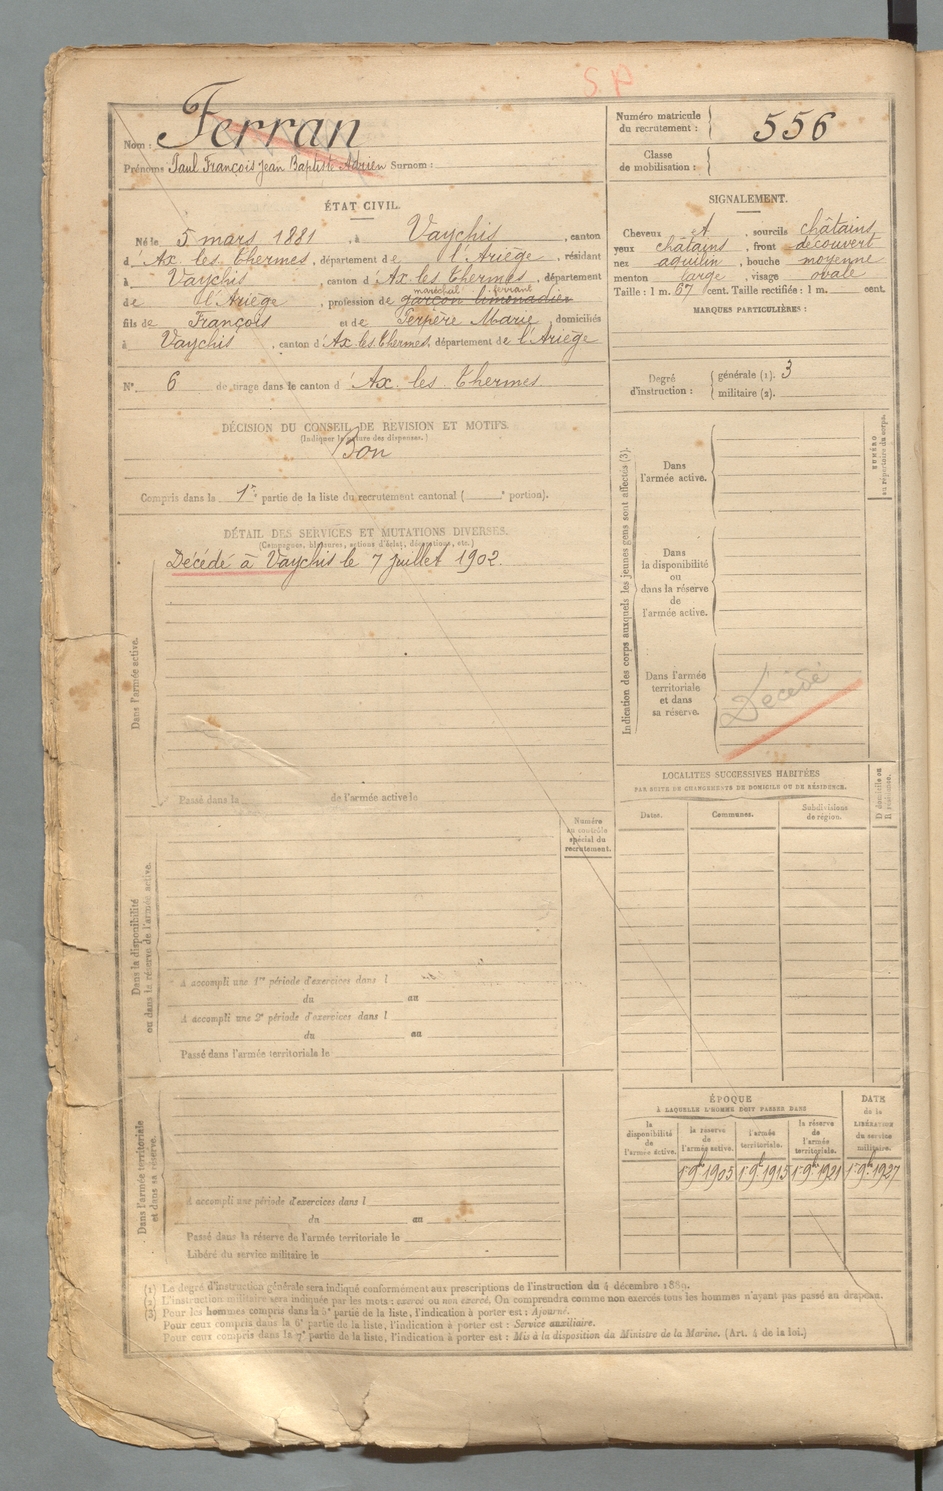 S P
Ferran
Nom :
Prénoms Paul François Jean Baptiste Adrien Surnom :
ÉTAT CIVIL.
Né le 5 mars 1881, à Vaychis, canton
d'Ax les Thermes, département de l'Ariège, résidant
à Vaychis, canton d'Ax les Thermes, département
maréchal ferrant
de l'Ariège, profession de garçon limonadier
fils de François et de Terpère Marie domiciliés
à Vaychis, canton d'Ax les Thermes, département de l'Ariège
N° 6 de tirage dans le canton d'Ax les Thermes
DÉCISION DU CONSEIL DE REVISION ET MOTIFS.
(Indiquer la nature des dispenses.)
Bon
Compris dans la 1re partie de la liste du recrutement cantonal ( e portion).
DÉTAIL DES SERVICES ET MUTATIONS DIVERSES.
(Campagnes, blessures, actions d'éclat, décorations, etc.)
Décédé à Vaychis le 7 juillet 1902.
Dans l'armée active.
Passé dans la de l'armée active le
Numéro
au contrôle
spécial du
recrutement.
Dans la disponibilité
ou dans la réserve de l'armée active.
A accompli une 1re période d'exercices dans l
du au
A accompli une 2e période d'exercices dans l
du au
Passé dans l'armée territoriale le
Dans l'armée territoriale
et dans sa réserve.
A accompli une période d'exercices dans l
du au
Passé dans la réserve de l'armée territoriale le
Libéré du service militaire le
Numéro matricule
du recrutement :
556
Classe
de mobilisation :
SIGNALEMENT.
Cheveux A, sourcils châtains
yeux châtains, front découvert
nez aquilin, bouche moyenne
menton large, visage ovale
Taille : 1 m. 67 cent. Taille rectifiée : 1 m. cent.
MARQUES PARTICULIÈRES :
Degré
d'instruction :
générale (1). 3
militaire (2).
Indication des corps auxquels les jeunes gens sont affectés (3).
NUMÉRO
au répertoire du corps.
Dans
l'armée active.
Dans
la disponibilité
ou
dans la réserve
de
l'armée active.
Dans l'armée
territoriale
et dans
sa réserve.
Décédé
LOCALITÉS SUCCESSIVES HABITÉES
PAR SUITE DE CHANGEMENTS DE DOMICILE OU DE RÉSIDENCE.
Dates.
Communes.
Subdivisions
de région.
D domicile ou
R résidence.
ÉPOQUE
À LAQUELLE L'HOMME DOIT PASSER DANS
la
disponibilité
de
l'armée active.
la réserve
de
l'armée active.
l'armée
territoriale.
la réserve
de
l'armée
territoriale.
DATE
de la
LIBÉRATION
du service
militaire.
1er 9bre 1905 1er 9bre 1915 1er 9bre 1921 1er 9bre 1927
(1) Le degré d'instruction générale sera indiqué conformément aux prescriptions de l'instruction du 4 décembre 1889.
(2) L'instruction militaire sera indiquée par les mots : exercé ou non exercé. On comprendra comme non exercés tous les hommes n'ayant pas passé au drapeau.
(3) Pour les hommes compris dans la 5e partie de la liste, l'indication à porter est : Ajourné.
Pour ceux compris dans la 6e partie de la liste, l'indication à porter est : Service auxiliaire.
Pour ceux compris dans la 7e partie de la liste, l'indication à porter est : Mis à la disposition du Ministre de la Marine. (Art. 4 de la loi.)